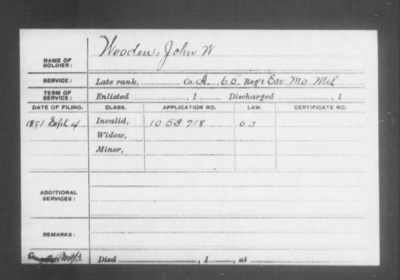 NAME OF SOLDIER: Weeden, John W
SERVICE: Late rank, Co. A, 60 Reg't Enr. Mo. Mil
TERM OF SERVICE: Enlisted , 1 Discharged , 1
DATE OF FILING. CLASS. APPLICATION NO. LAW. CERTIFICATE NO.
1891 Sept. 4 Invalid, 1053718
Widow,
Minor,
ADDITIONAL SERVICES:
REMARKS:
Died , 1 , at